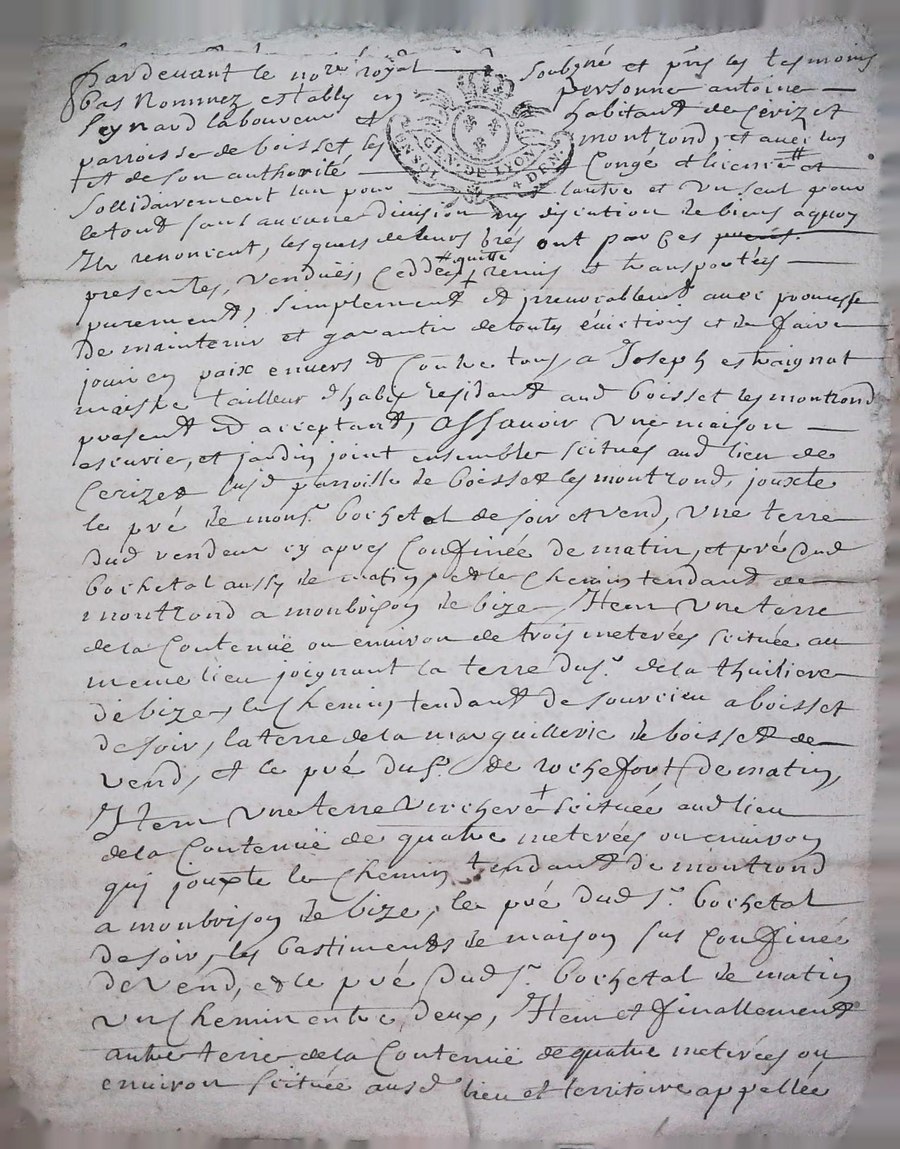 Pardevant le nore royal soubzné et pñs les tesmoins
bas nommez estably en personne antoine
peynard laboureur et habitant de Cerizet
parroisse de boisset les montrond, et avec
et de son authorité Conge et licence et
sollidairement lun pour lautre et un seul pour
le tout sans aucune division ny discution de biens a quoy
Ils renoncent, lesquels de leurs grés ont par ces
presentes, venduës, Ceddées, quitté remis et transportées
purement, simplement et irrevocablement avec promesse
de maintenir et garantir de touts évictions et de faire
jouir en paix envers et Contre tous a Joseph estraignat
maistre tailleur dhabix residant aud boisset les montrond
present et acceptant, assavoir une maison
escurie, et jardin joint ensemble scitués aud lieu de
Cerizet susd parroisse de boisset les montrond, jouxte
le pré de monsr. bochetal de soir et vend, une terre
dud vendeur cy apres Confinée de matin, et pré dud
bochetal aussy de matin, et le chemin tendant de
montrond a monbrison de bize, Item une terre
de la Contenuë ou environ de trois meterées scituée au
meme lieu joignant la terre du sr. de la thuiliere
de bize, le chemin tendant de sourcieu a boisset
de soir, la terre de la marguillerie de boisset de
vend, et le pré du sr. de rochefort de matin,
Item une terre verchere scituée aud lieu
de la Contenuë de quatre meterées ou environ
qui jouxte le chemin tendant de montrond
a monbrison de bize, le pré dud sr. bochetal
de soir, les bastiments de maison sus Confinée
de vend, et le pré dud sr. bochetal de matin
un chemin entre deux, Item et finallement
autre terre de la Contenuë de quatre meterées ou
environ scituée ausd lieu et territoire appellée
GEN. DE LYON
4 DEN.